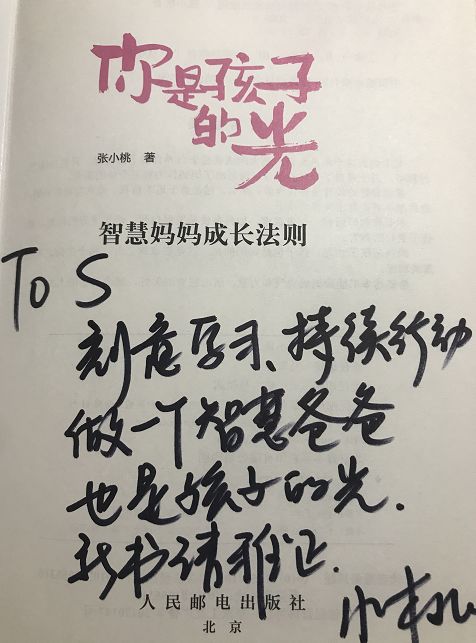 你是孩子
的光
张小桃 著
智慧妈妈成长法则
To S
刻意学习、持续行动
做一个智慧爸爸
也是孩子的光.
新书请雅正.
小桃
人民邮电出版社
北京